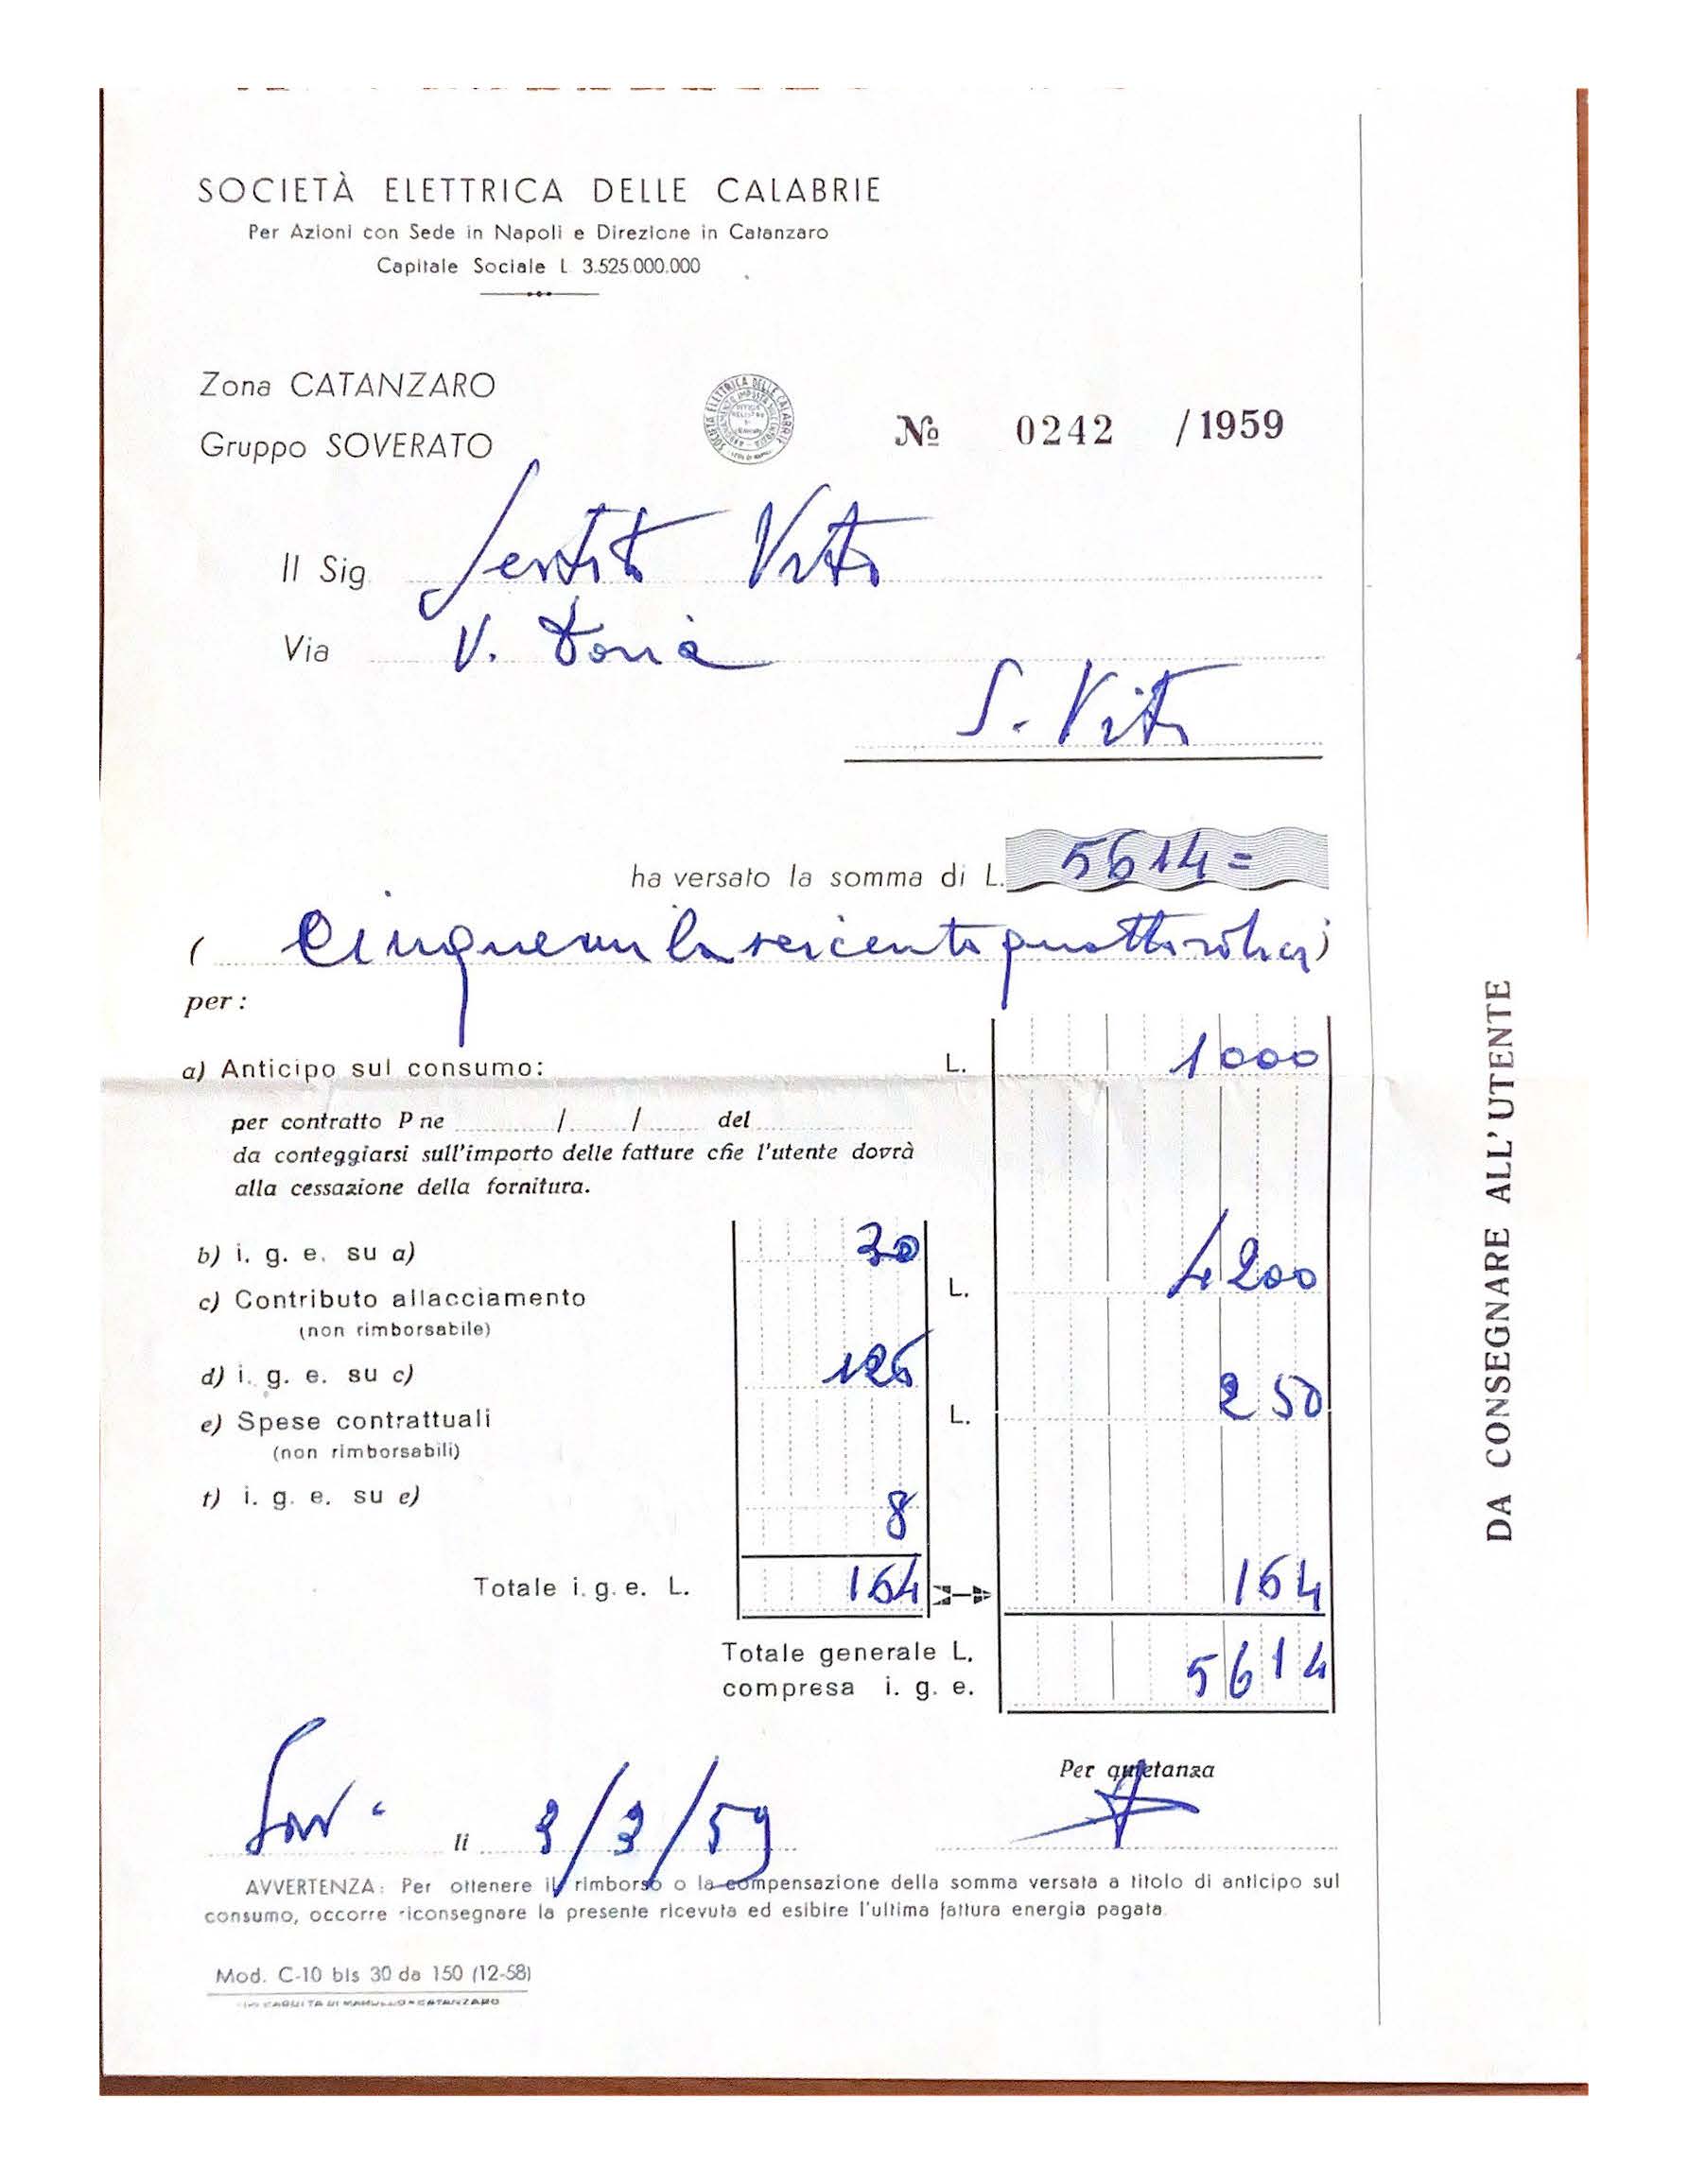 SOCIETÀ ELETTRICA DELLE CALABRIE
Per Azioni con Sede in Napoli e Direzione in Catanzaro
Capitale Sociale L. 3.525.000.000
Zona CATANZARO
Gruppo SOVERATO
No 0242 /1959
Il Sig. Sestito Vito
Via V. Doria
S. Vito
ha versato la somma di L. 5614=
( Cinquemilaseicentoquattordici)
per:
a) Anticipo sul consumo: L. 1000
per contratto P ne / / del
da conteggiarsi sull'importo delle fatture che l'utente dovrà
alla cessazione della fornitura.
b) i. g. e. su a) 30
c) Contributo allacciamento L. 4200
(non rimborsabile)
d) i. g. e. su c) 126
e) Spese contrattuali L. 250
(non rimborsabili)
f) i. g. e. su e) 8
Totale i. g. e. L. 164 164
Totale generale L. 5614
compresa i. g. e.
Per quietanza
Sov. li 3/3/59
AVVERTENZA: Per ottenere il rimborso o la compensazione della somma versata a titolo di anticipo sul
consumo, occorre riconsegnare la presente ricevuta ed esibire l'ultima fattura energia pagata.
Mod. C-10 bis 30 da 150 (12-58)
DA CONSEGNARE ALL'UTENTE